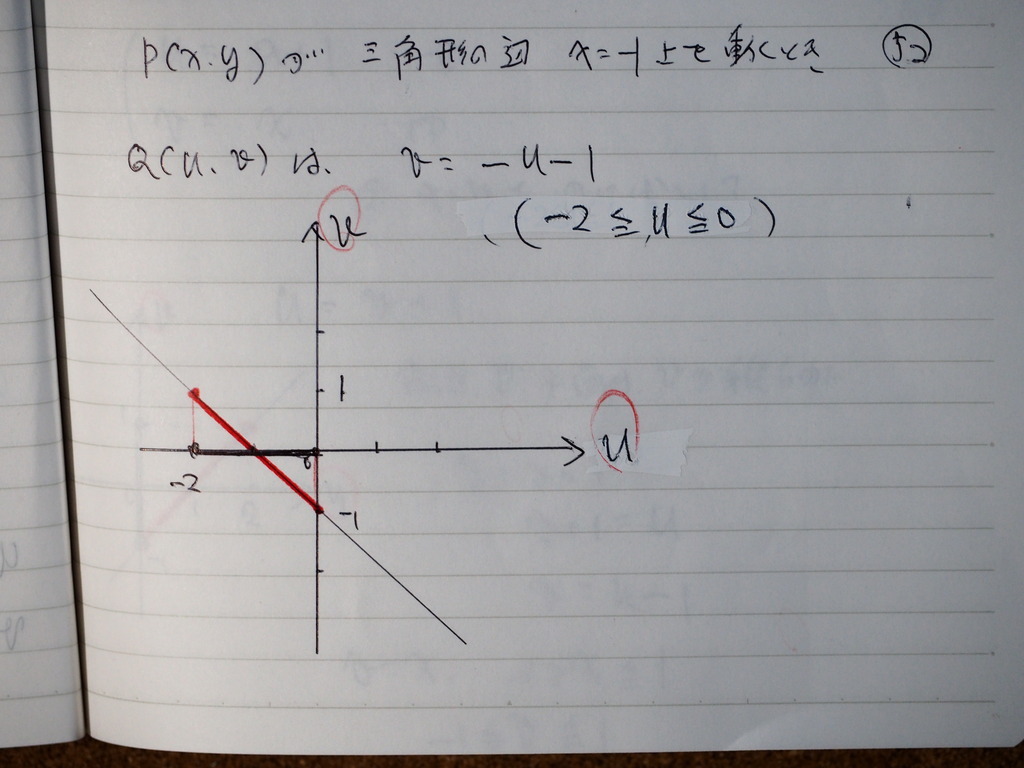 P(x.y)が 三角形の辺 x=-1上で動くとき
Q(u.v)は、 v= -u-1
(-2≦u≦0)
v
1
u
0
-2
-1